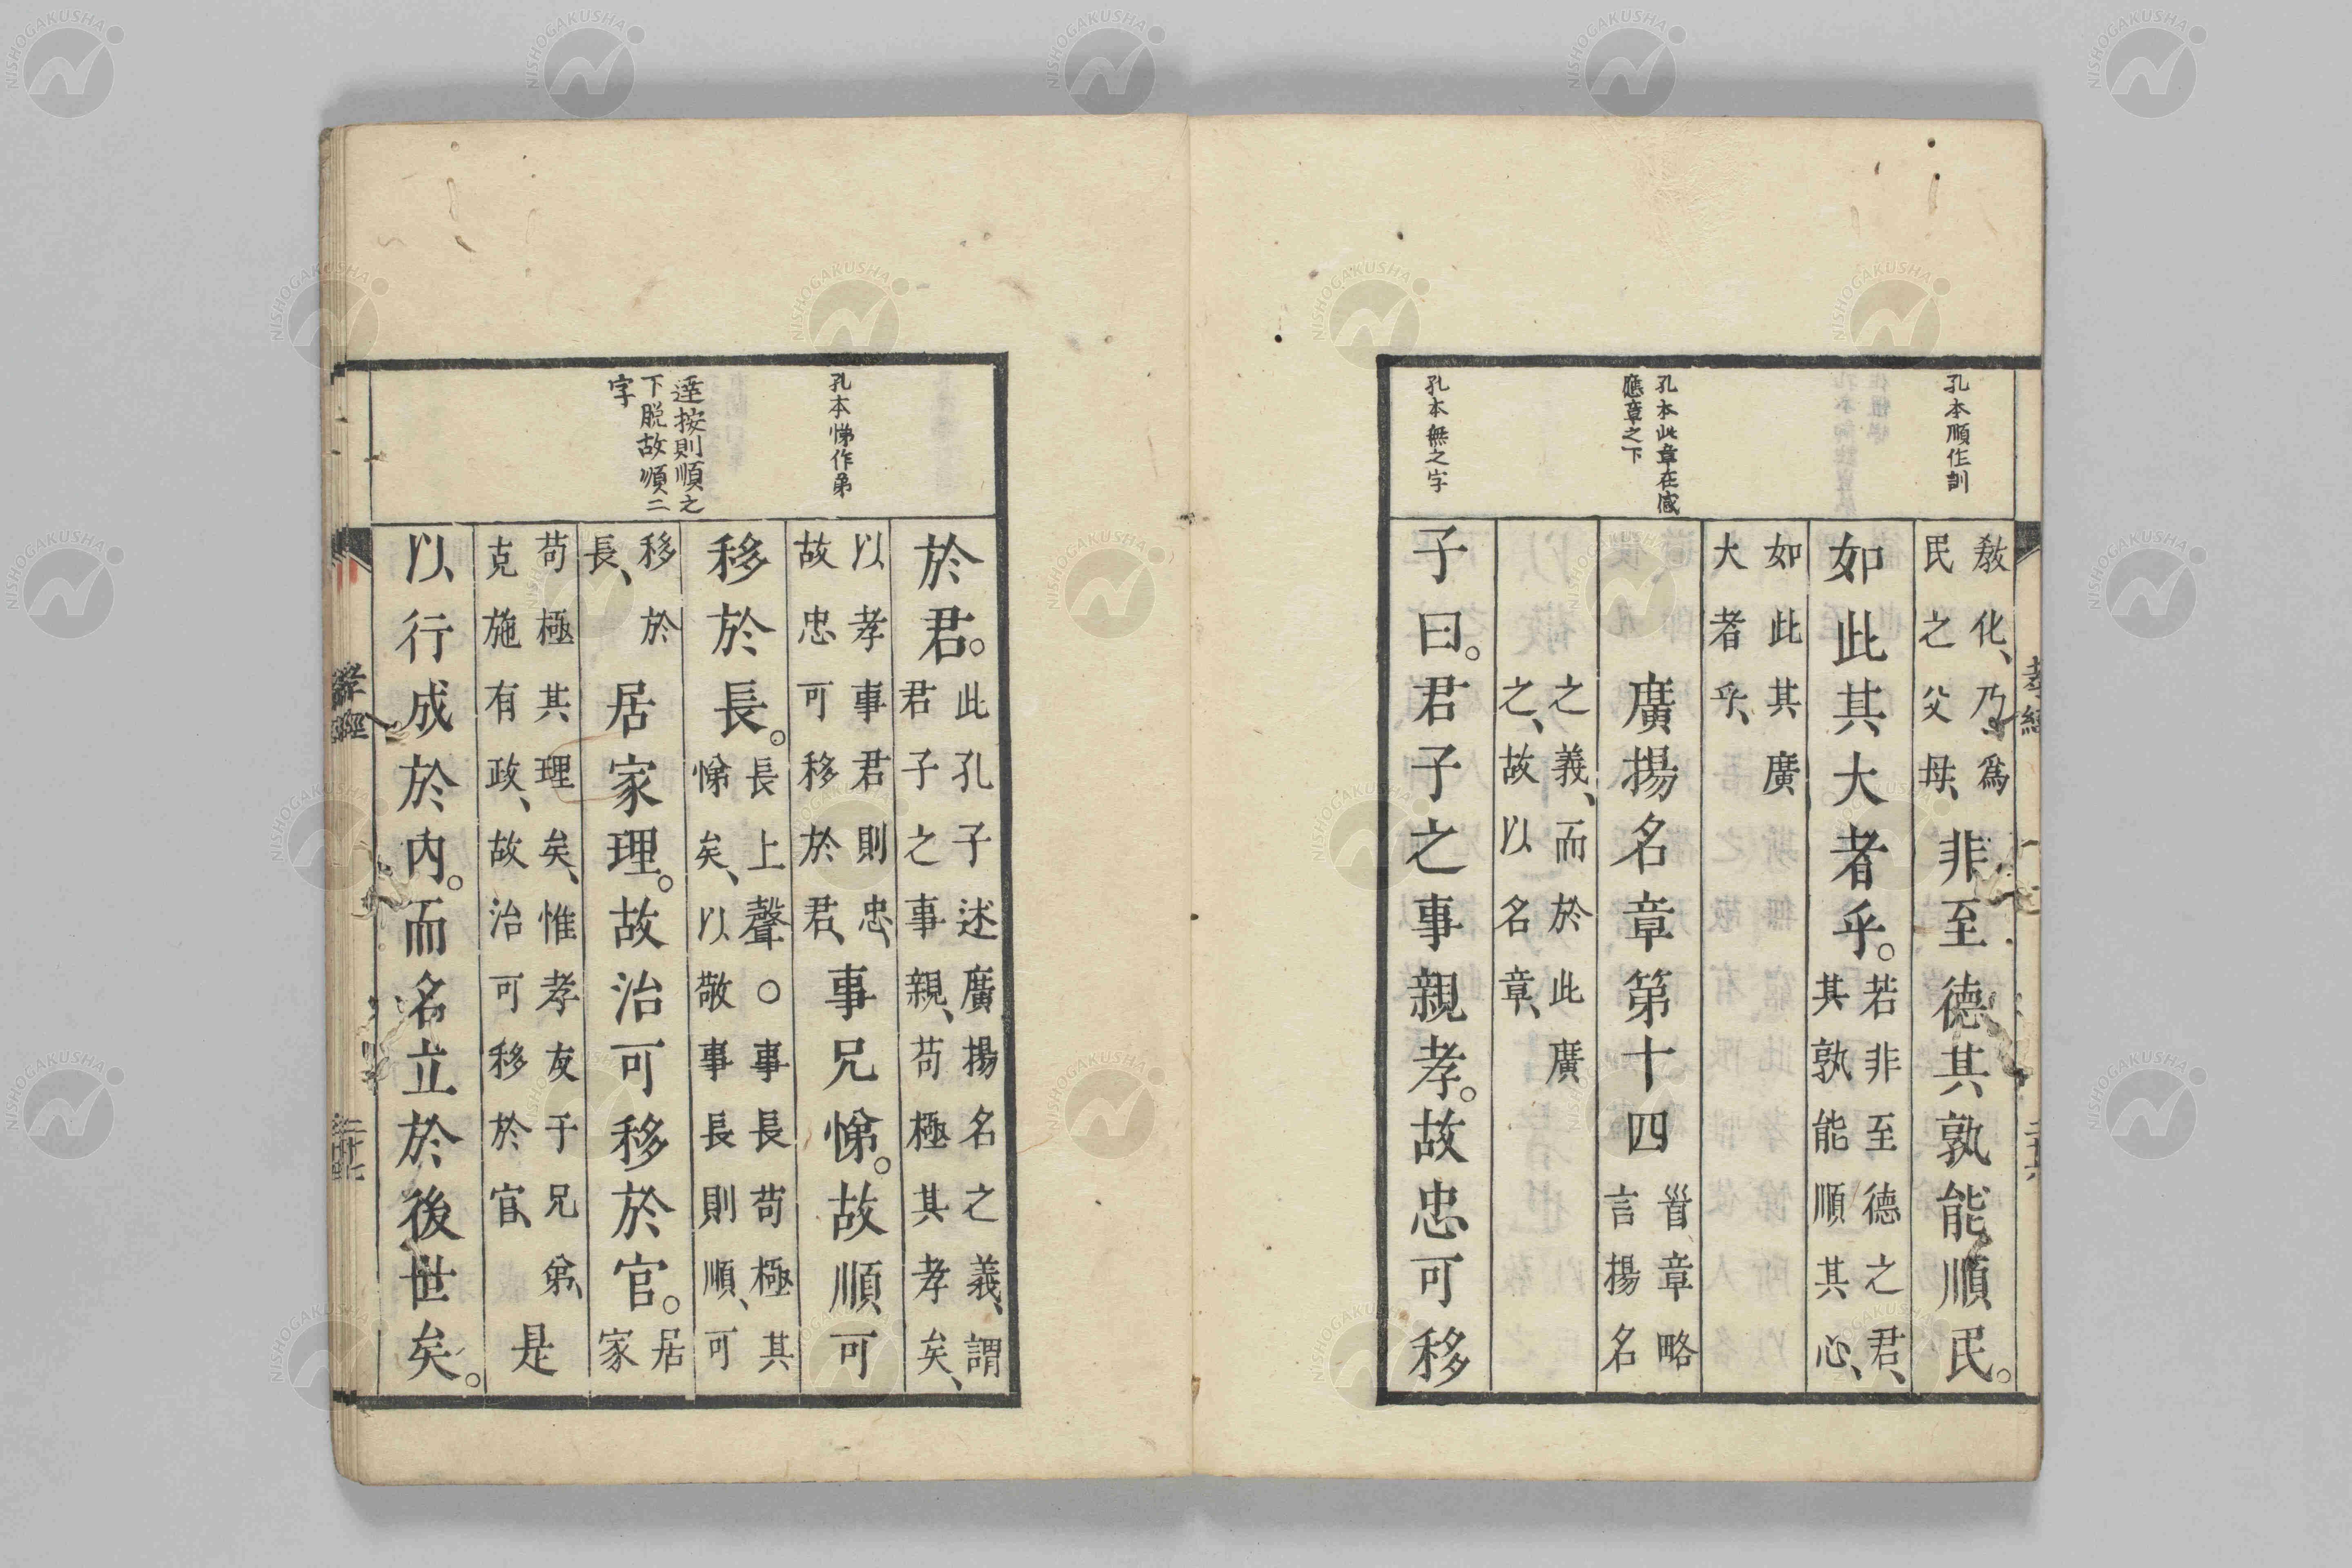 孔本順作訓
孔本此章在感
應章之下
孔本無之字
教化、乃爲
民之父母、
非至德其孰能順民。
如此其大者乎。
若非至德之君、
其孰能順其心、
如此其廣
大者乎、
廣揚名章第十四
首章略
言揚名
之義、而於此廣
之、故以名章、
子曰。君子之事親孝。故忠可移
孝經
二十六
孔本悌作弟
逵按則順之
下脱故順二
字
於君。
此孔子述廣揚名之義、謂
君子之事親、苟極其孝矣、
以孝事君則忠、
故忠可移於君、
事兄悌。故順可
移於長。
長上聲○事長苟極其
悌矣、以敬事長則順、可
移於
長、
居家理。故治可移於官。
居
家
苟極其理矣、惟孝友于兄弟、
克施有政、故治可移於官、
是
以行成於内。而名立於後世矣。
孝經
二十七
NISHOGAKUSHA